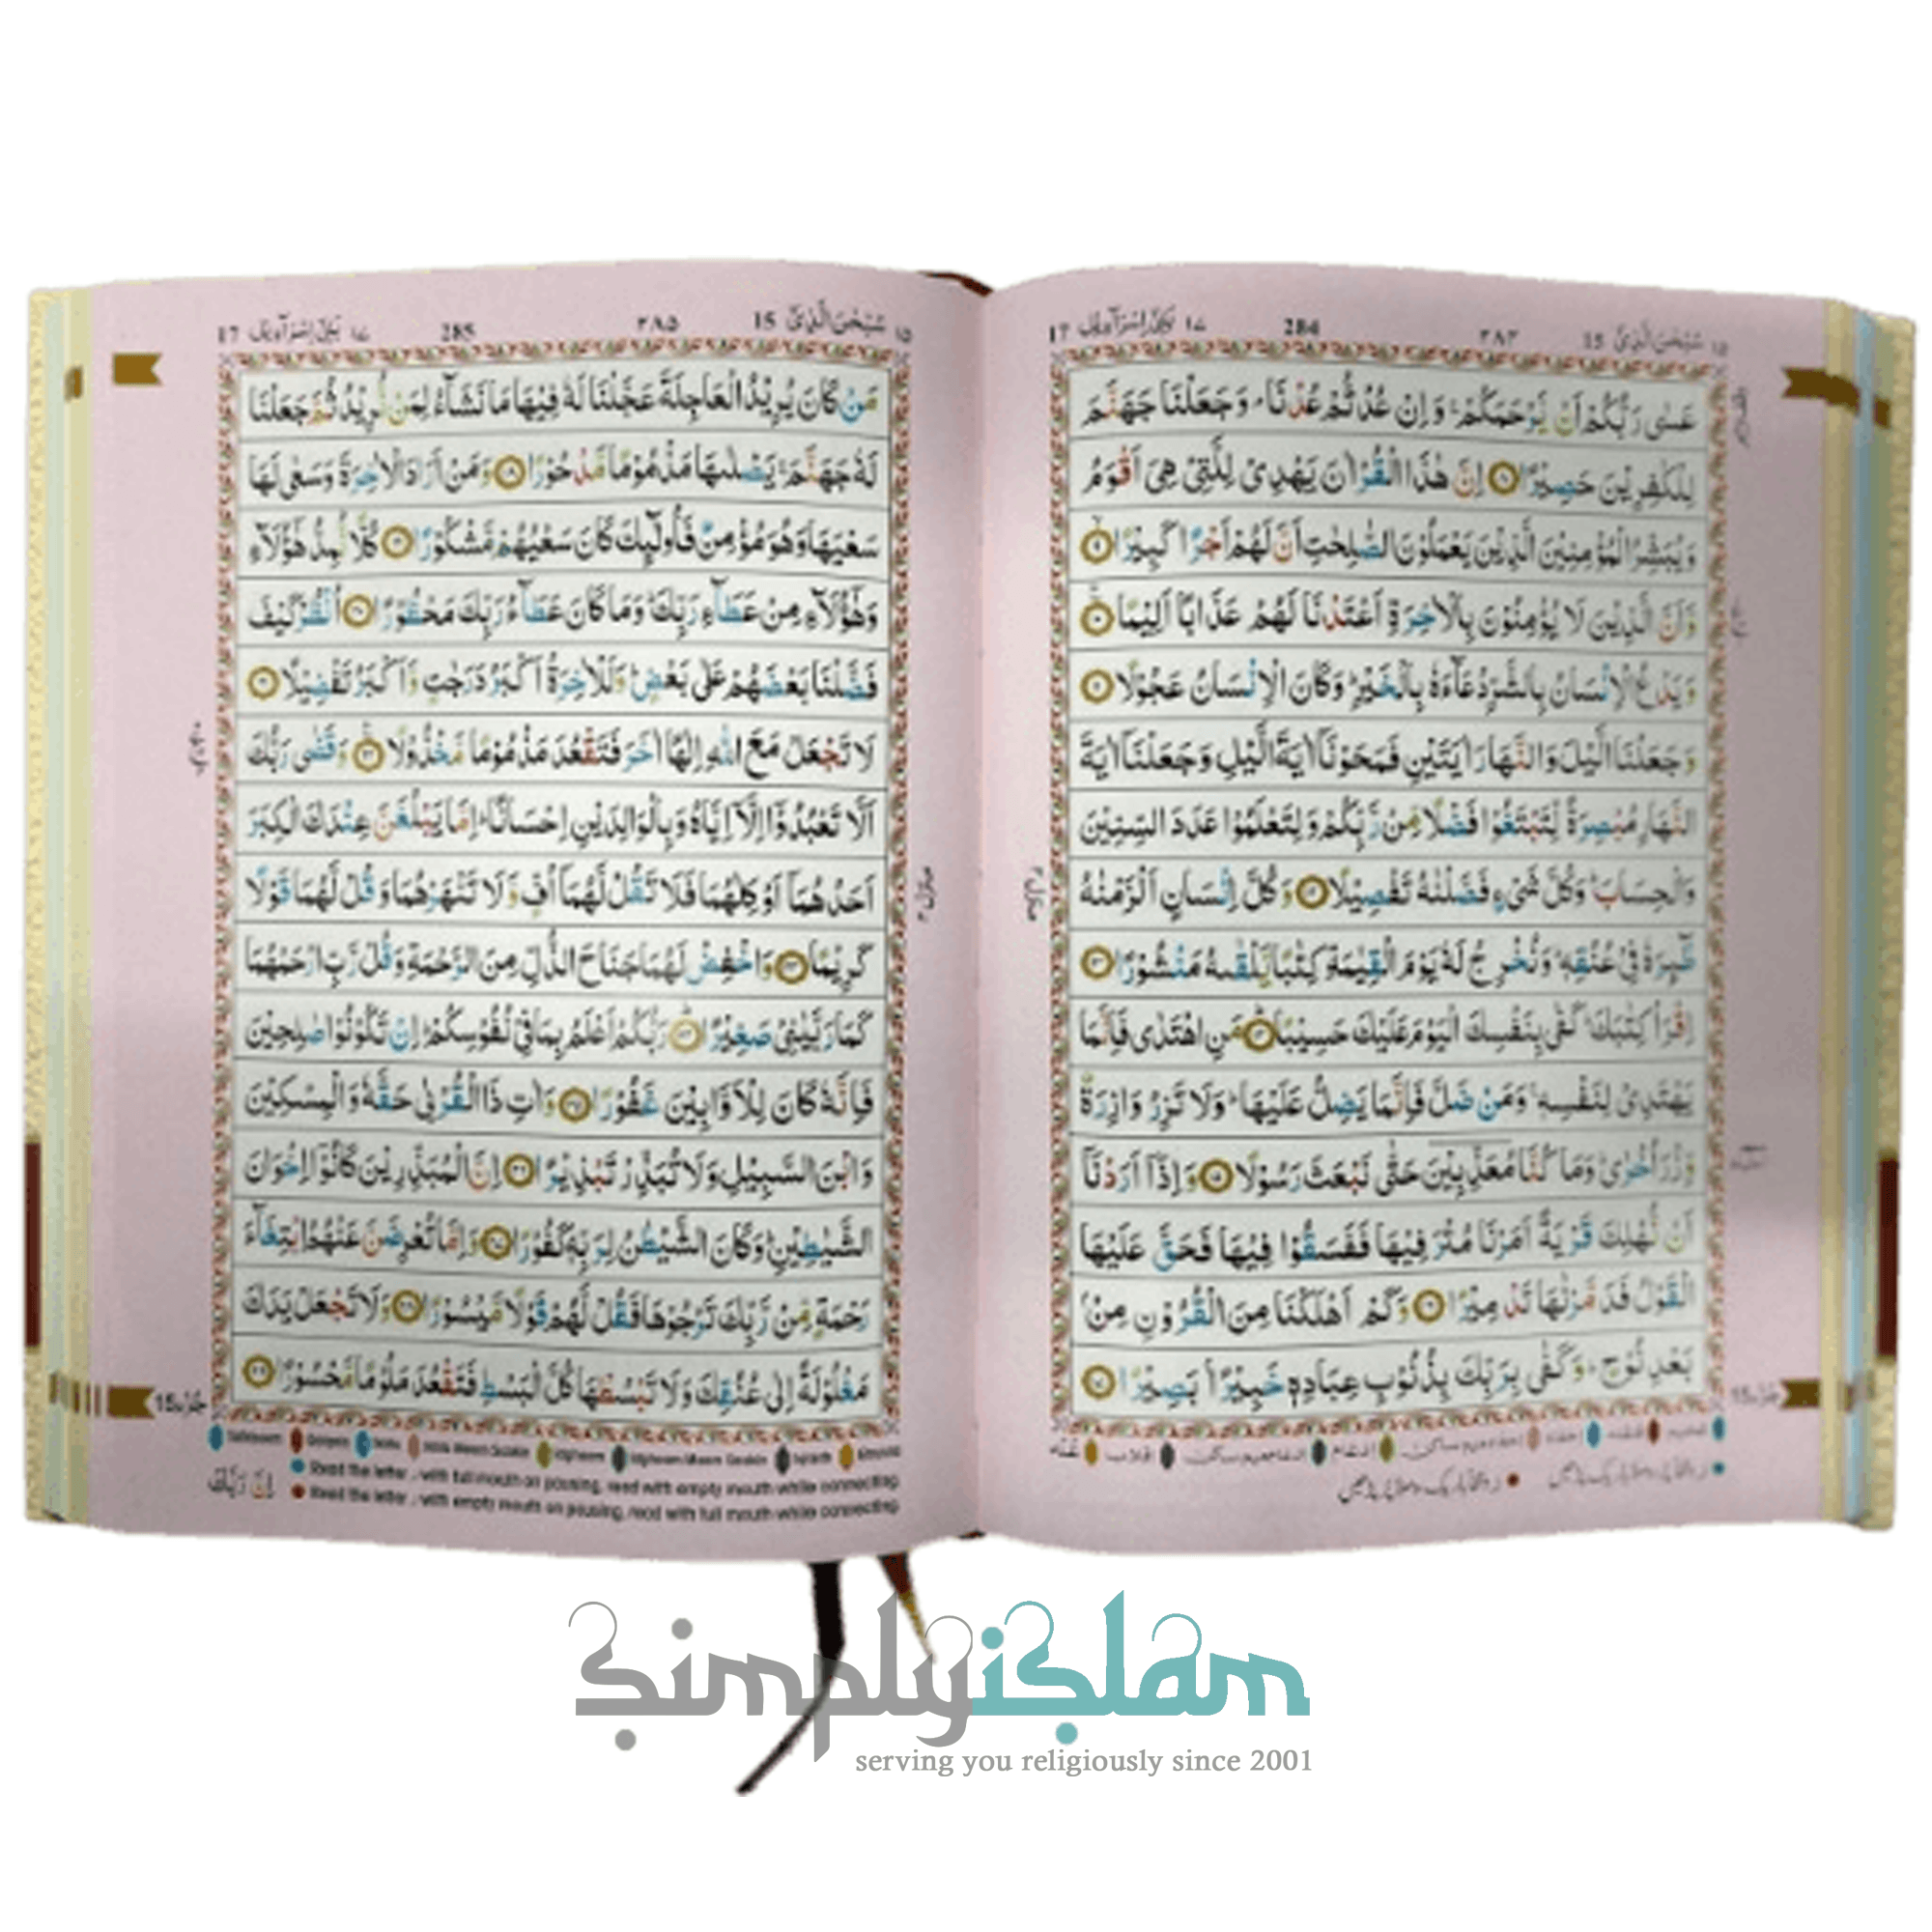 سُبْحٰنَ الَّذِیْٓ 15
284
بَنِیْٓ اِسْرَآءِیْل ١٧
عَسٰى رَبُّكُمْ اَنْ يَّرْحَمَكُمْ ۚ وَاِنْ عُدْتُّمْ عُدْنَا ۘ وَجَعَلْنَا جَهَنَّمَ
لِلْكٰفِرِيْنَ حَصِيْرًا ۝٨ اِنَّ هٰذَا الْقُرْاٰنَ يَهْدِىْ لِلَّتِىْ هِىَ اَقْوَمُ
وَيُبَشِّرُ الْمُؤْمِنِيْنَ الَّذِيْنَ يَعْمَلُوْنَ الصّٰلِحٰتِ اَنَّ لَهُمْ اَجْرًا كَبِيْرًا ۝٩
وَّاَنَّ الَّذِيْنَ لَا يُؤْمِنُوْنَ بِالْاٰخِرَةِ اَعْتَدْنَا لَهُمْ عَذَابًا اَلِيْمًا ۝١٠
وَيَدْعُ الْاِنْسَانُ بِالشَّرِّ دُعَآءَهٗ بِالْخَيْرِ ؕ وَكَانَ الْاِنْسَانُ عَجُوْلًا ۝١١
وَجَعَلْنَا الَّيْلَ وَالنَّهَارَ اٰيَتَيْنِ فَمَحَوْنَاۤ اٰيَةَ الَّيْلِ وَجَعَلْنَاۤ اٰيَةَ
النَّهَارِ مُبْصِرَةً لِّتَبْتَغُوْا فَضْلًا مِّنْ رَّبِّكُمْ وَلِتَعْلَمُوْا عَدَدَ السِّنِيْنَ
وَالْحِسَابَ ؕ وَكُلَّ شَىْءٍ فَصَّلْنٰهُ تَفْصِيْلًا ۝١٢ وَكُلَّ اِنْسَانٍ اَلْزَمْنٰهُ
طٰٓئِرَهٗ فِىْ عُنُقِهٖ ؕ وَنُخْرِجُ لَهٗ يَوْمَ الْقِيٰمَةِ كِتٰبًا يَّلْقٰىهُ مَنْشُوْرًا ۝١٣
اِقْرَاْ كِتٰبَكَ ؕ كَفٰى بِنَفْسِكَ الْيَوْمَ عَلَيْكَ حَسِيْبًا ۝١٤ مَنِ اهْتَدٰى فَاِنَّمَا
يَهْتَدِىْ لِنَفْسِهٖ ۚ وَمَنْ ضَلَّ فَاِنَّمَا يَضِلُّ عَلَيْهَا ؕ وَلَا تَزِرُ وَازِرَةٌ
وِّزْرَ اُخْرٰى ؕ وَمَا كُنَّا مُعَذِّبِيْنَ حَتّٰى نَبْعَثَ رَسُوْلًا ۝١٥ وَاِذَاۤ اَرَدْنَاۤ
اَنْ نُّهْلِكَ قَرْيَةً اَمَرْنَا مُتْرَفِيْهَا فَفَسَقُوْا فِيْهَا فَحَقَّ عَلَيْهَا
الْقَوْلُ فَدَمَّرْنٰهَا تَدْمِيْرًا ۝١٦ وَكَمْ اَهْلَكْنَا مِنَ الْقُرُوْنِ مِنْۢ
بَعْدِ نُوْحٍ ؕ وَكَفٰى بِرَبِّكَ بِذُنُوْبِ عِبَادِهٖ خَبِيْرًاۢ بَصِيْرًا ۝١٧
سُبْحٰنَ الَّذِیْٓ 15
٢٨٥
285
بَنِیْٓ اِسْرَآءِیْل ١٧
17
مَنْ كَانَ يُرِيْدُ الْعَاجِلَةَ عَجَّلْنَا لَهٗ فِيْهَا مَا نَشَآءُ لِمَنْ نُّرِيْدُ ثُمَّ جَعَلْنَا
لَهٗ جَهَنَّمَ ۚ يَصْلٰىهَا مَذْمُوْمًا مَّدْحُوْرًا ۝١٨ وَمَنْ اَرَادَ الْاٰخِرَةَ وَسَعٰى لَهَا
سَعْيَهَا وَهُوَ مُؤْمِنٌ فَاُولٰٓئِكَ كَانَ سَعْيُهُمْ مَّشْكُوْرًا ۝١٩ كُلًّا نُّمِدُّ هٰٓؤُلَآءِ
وَهٰٓؤُلَآءِ مِنْ عَطَآءِ رَبِّكَ ؕ وَمَا كَانَ عَطَآءُ رَبِّكَ مَحْظُوْرًا ۝٢٠ اُنْظُرْ كَيْفَ
فَضَّلْنَا بَعْضَهُمْ عَلٰى بَعْضٍ ؕ وَلَلْاٰخِرَةُ اَكْبَرُ دَرَجٰتٍ وَّاَكْبَرُ تَفْضِيْلًا ۝٢١
لَا تَجْعَلْ مَعَ اللّٰهِ اِلٰهًا اٰخَرَ فَتَقْعُدَ مَذْمُوْمًا مَّخْذُوْلًا ۝٢٢ وَقَضٰى رَبُّكَ
اَلَّا تَعْبُدُوْۤا اِلَّاۤ اِيَّاهُ وَبِالْوَالِدَيْنِ اِحْسَانًا ؕ اِمَّا يَبْلُغَنَّ عِنْدَكَ الْكِبَرَ
اَحَدُهُمَاۤ اَوْ كِلٰهُمَا فَلَا تَقُلْ لَّهُمَاۤ اُفٍّ وَّلَا تَنْهَرْهُمَا وَقُلْ لَّهُمَا قَوْلًا
كَرِيْمًا ۝٢٣ وَاخْفِضْ لَهُمَا جَنَاحَ الذُّلِّ مِنَ الرَّحْمَةِ وَقُلْ رَّبِّ ارْحَمْهُمَا
كَمَا رَبَّيٰنِىْ صَغِيْرًا ۝٢٤ رَبُّكُمْ اَعْلَمُ بِمَا فِىْ نُفُوْسِكُمْ ؕ اِنْ تَكُوْنُوْا صٰلِحِيْنَ
فَاِنَّهٗ كَانَ لِلْاَوَّابِيْنَ غَفُوْرًا ۝٢٥ وَاٰتِ ذَا الْقُرْبٰى حَقَّهٗ وَالْمِسْكِيْنَ
وَابْنَ السَّبِيْلِ وَلَا تُبَذِّرْ تَبْذِيْرًا ۝٢٦ اِنَّ الْمُبَذِّرِيْنَ كَانُوْۤا اِخْوَانَ
الشَّيٰطِيْنِ ؕ وَكَانَ الشَّيْطٰنُ لِرَبِّهٖ كَفُوْرًا ۝٢٧ وَاِمَّا تُعْرِضَنَّ عَنْهُمُ ابْتِغَآءَ
رَحْمَةٍ مِّنْ رَّبِّكَ تَرْجُوْهَا فَقُلْ لَّهُمْ قَوْلًا مَّيْسُوْرًا ۝٢٨ وَلَا تَجْعَلْ يَدَكَ
مَغْلُوْلَةً اِلٰى عُنُقِكَ وَلَا تَبْسُطْهَا كُلَّ الْبَسْطِ فَتَقْعُدَ مَلُوْمًا مَّحْسُوْرًا ۝٢٩
Read the letter ر with full mouth on pausing, read with empty mouth while connecting
Read the letter ر with empty mouth on pausing, read with full mouth while connecting
اِنَّ رَبَّكَ
simplyislam
serving you religiously since 2001